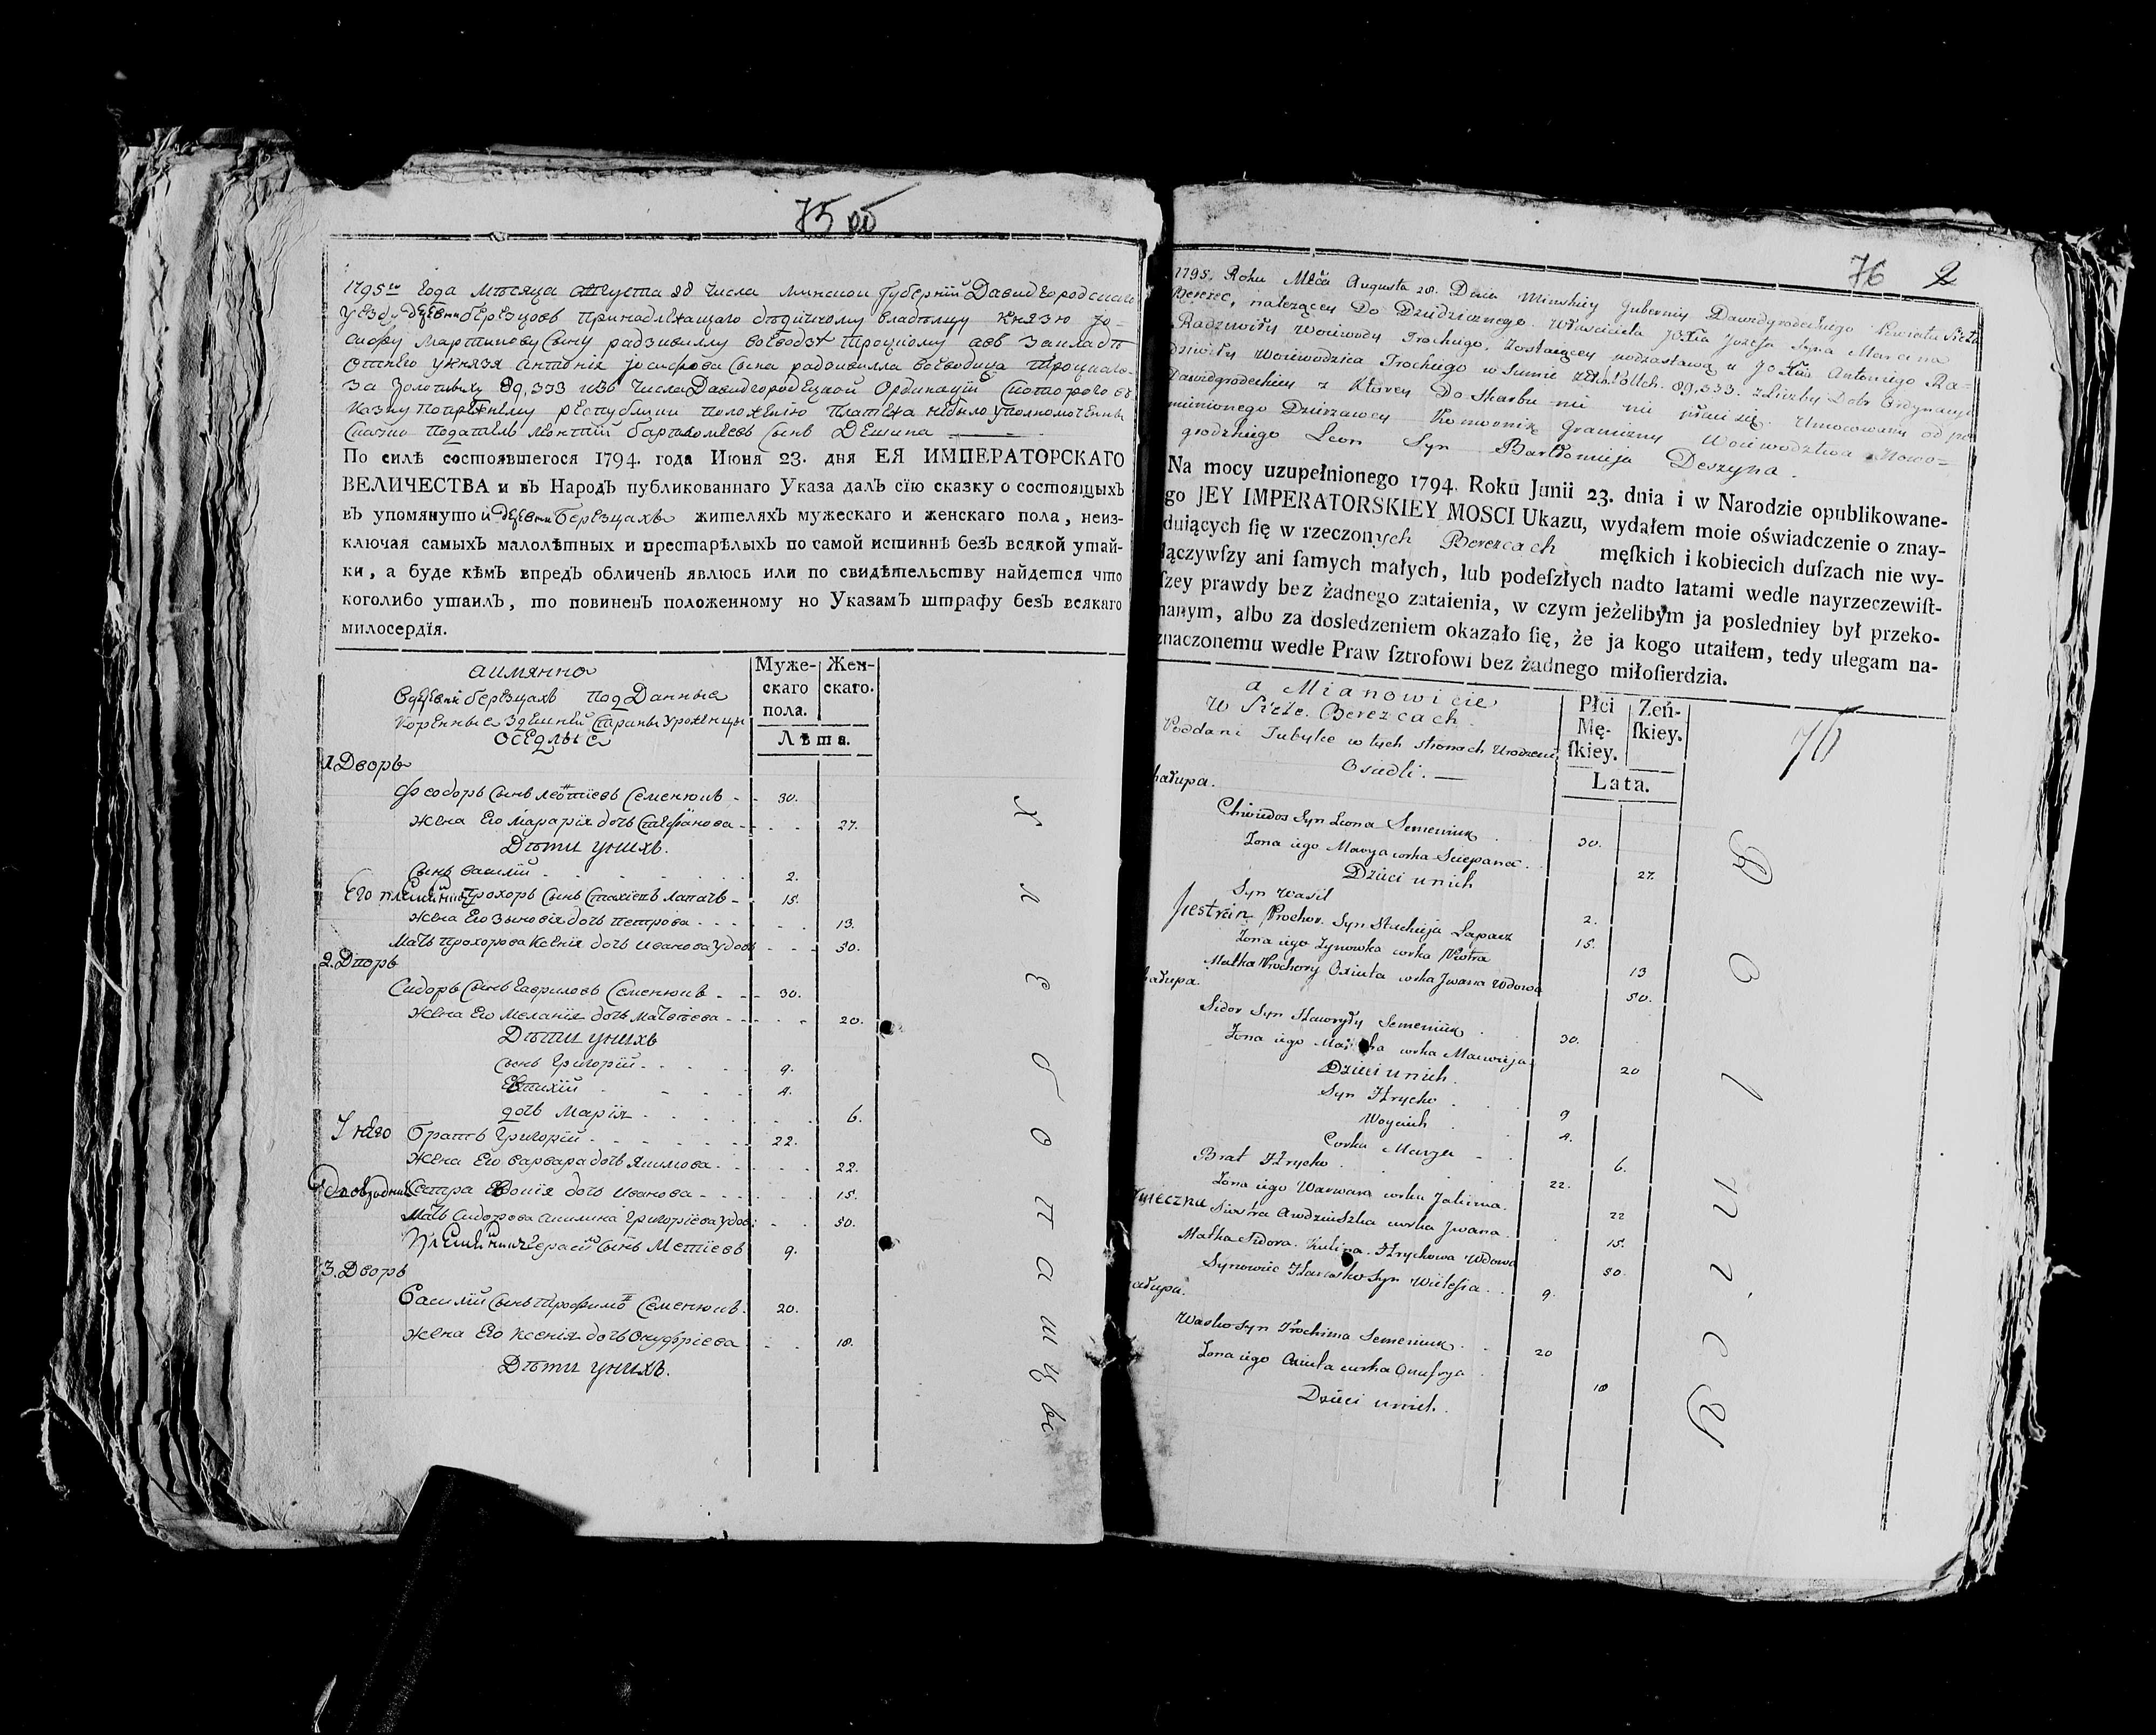 75 об
1795го Года Мѣсяца Августа 28 Числа Минской Губерніи Давидгородскаго
уезду дѣревни берѣзцовъ принадлежащаго дѣдичному владѣлцу Князю Іо-
сифу Мартинову Сыну радзивиллу воеводѣ троцкому авъ закладѣ
у Князя антонія іосифова Сына радзивилла воеводица троцкаго
за Золотыхъ 89,333 изъ Числа Давидгородецкой Ординацій
Казну попрежнему республики положенію платежа небыло уполномоченны
податель леонтій бартоломѣевъ сынъ Дешина
По силѣ состоявшегося 1794. года Июня 23. дня ЕЯ ИМПЕРАТОРСКАГО
ВЕЛИЧЕСТВА и въ Народъ публикованнаго Указа далъ сїю сказку о состоящыхъ
въ упомянутой деревни Берѣзцахъ жителяхъ мужескаго и женскаго пола, неиз-
ключая самыхъ малолѣтныхъ и престарѣлыхъ по самой истиннѣ безъ всякой утай-
ки, а буде кѣмъ впредъ обличенъ явлюсь или по свидѣтельству найдется что
коголибо утаилъ, то повиненъ положенному по Указамъ штрафу безъ всякаго
милосердїя.
аимянно
Вдеревнѣ берѣзцахъ под Данные
Коренные здешнѣй Стараны уроженцы
осѣдлые
Муже-скаго пола. Жен-скаго.
Лѣта.
1. Дворъ
Феодоръ Сынъ леонтіевъ Семенюкъ - - 30.
жена Его Марарія дочь Стефанова - - 27.
Дѣти унихъ.
Сынъ василій 2.
Его племянникъ прохоръ Сынъ Стахіевъ лапачъ - 15.
жена Его Зыновія дочь петрова - - 13.
Мать прохорова Ксенія дочь иванова удова - - 50.
2. Дворъ
Сидоръ Сынъ гавриловъ Семенюкъ - - 30.
жена Его Меланія дочь матвѣева - - 20.
Дѣти унихъ
Сынъ Григорій 9.
Евтихій 4.
дочь Марія 6.
У него братъ Григорій 22.
жена Его варвара дочь якимова 22.
Сестра Евдокія дочь иванова - - 15.
Мать Сидорова акилина григоріева удова - 50.
Племянникъ герасимъ Сынъ Метіевъ 9.
3. Дворъ
Василій Сынъ трофимовъ Семенюкъ. 20.
жена Его Ксенія дочь Онуфріева 18.
Дѣти унихъ.
хлебопашцы
76 2
1795. Roku Mca Augusta 28. Dnia Minskiey Gubernij Dawidgrodeckiego Powiatu Sioła
Berezec, należącey Do Dziedzicznego Własciciela JOXia Jozefa Syna Marcina
Radziwiłły Woiewody Trockiego, zostaiącey podzastawą u JOXia Antoniego Ra-
dziwiłły Woiewodzica Trockiego w Sumie Złł. Pollch. 89,333. z liczby Dobr Ordynacyi
Dawidgrodeckiey z Ktorey Do Skarbu nic nie płaci się. Umocowany od po-
mienionego Dzierzawcy Komornik Graniczny Woiewodztwa Nowo-
grodzkiego Leon Syn Bartłomieja Deszyna.
Na mocy uzupełnionego 1794. Roku Junii 23. dnia i w Narodzie opublikowane-
go JEY IMPERATORSKIEY MOSCI Ukazu, wydałem moie oświadczenie o znay-
duiących ſię w rzeczonych Berezcach męſkich i kobiecich duſzach nie wy-
łączywſzy ani ſamych małych, lub podeſzłych nadto latami wedle nayrzeczewiſt-
ſzey prawdy bez żadnego zataienia, w czym jeżelibym ja posledniey był przeko-
nanym, albo za dosledzeniem okazało ſię, że ja kogo utaiłem, tedy ulegam na-
znaczonemu wedle Praw ſztrofowi bez żadnego miłoſierdzia.
a Mianowicie
W Siele Berezcach
Poddani Tubylce w tych stronach Urodzeni
Osiedli.
Płci Mę-ſkiey. Zeń-ſkiey.
Lata.
76
hałupa.
Chwiedos Syn Leona Semeniuk 30.
Zona iego Marya corka Sciepana 27.
Dzieci unich
Syn Wasil 2.
Siestrin Prochor Syn Stachieja Łapacz 15.
Zona iego Zynowka corka Piotra 13
Matka Prochory Oxiuta corka Jwana Wdowa 50.
hałupa
Sidor Syn Hawryły Semeniuk 30.
Zona iego corka Macwieja 20
Dzieci unich.
Syn Hrycko 9
Woyciech 4.
Corka Marya 6.
Brat Hrycko 22.
Zona iego Warwara corka Jakima. 22
Siostra Awdziuszka corka Jwana 15.
Matka Sidora. Kulina Hrychowa Wdowa 50.
Synowiec Haraśko Syn 9.
ałupa.
Wasko Syn Trochima Semeniuk 20
Zona iego Oxiuta corka Onufrya 18
Dzieci unich.
Rolnicy